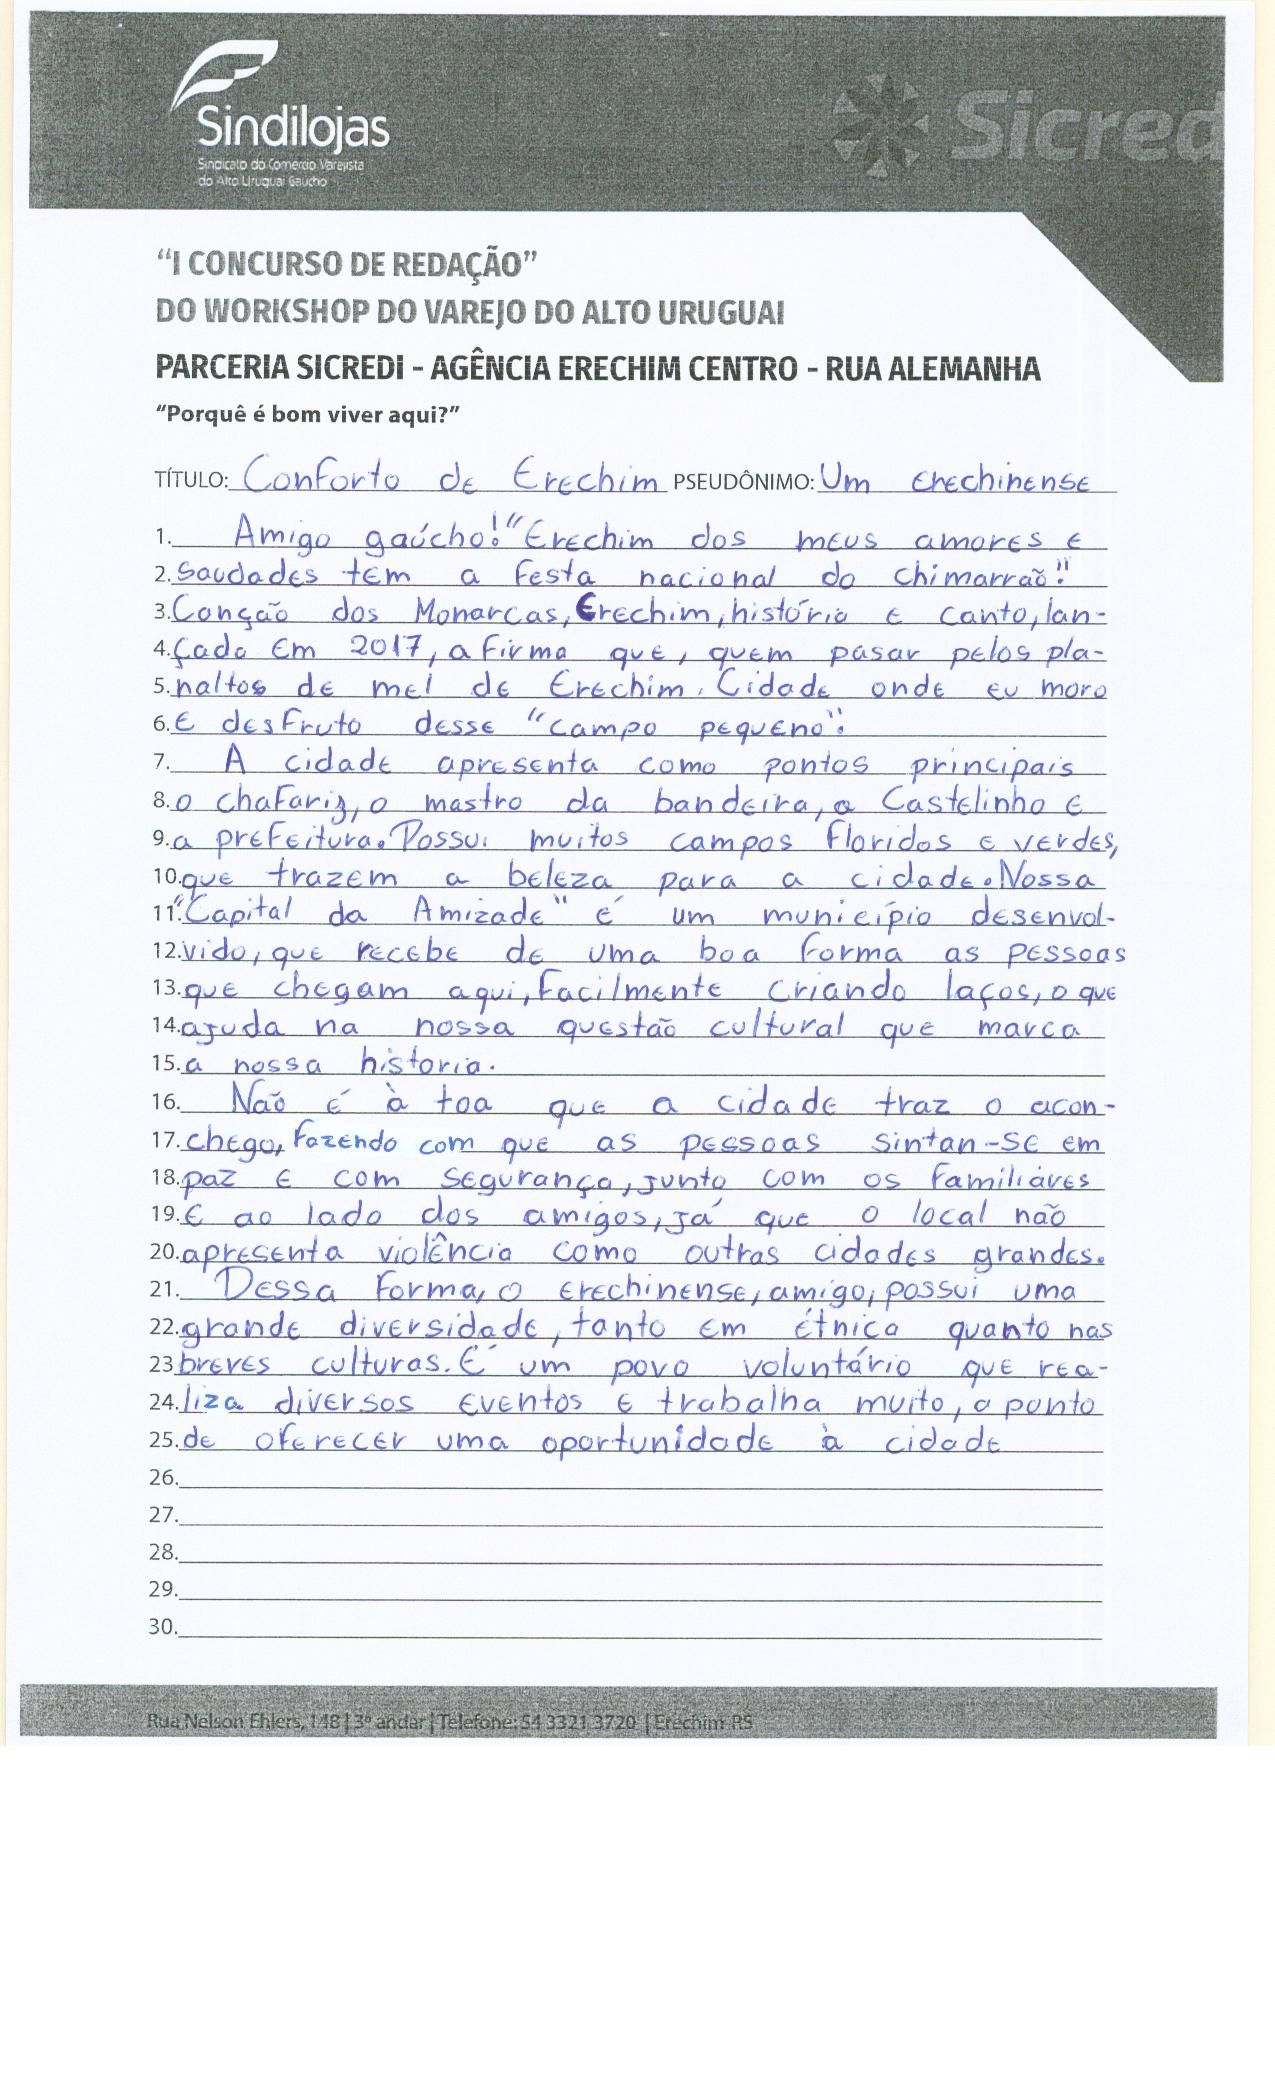 Sindilojas
Sindicato do Comércio Varejista
do Alto Uruguai Gaúcho
Sicred
“I CONCURSO DE REDAÇÃO”
DO WORKSHOP DO VAREJO DO ALTO URUGUAI
PARCERIA SICREDI - AGÊNCIA ERECHIM CENTRO - RUA ALEMANHA
“Porquê é bom viver aqui?”
TÍTULO: Conforto de Erechim PSEUDÔNIMO: Um erechinense
1. Amigo gaúcho! “Erechim dos meus amores e
2. saudades tem a festa nacional do chimarrão".
3. Canção dos Monarcas, Erechim, história e canto, lan-
4. çada em 2017, afirma que, quem pasar pelos pla-
5. naltos de mel de Erechim. Cidade onde eu moro
6. e desfruto desse “campo pequeno".
7. A cidade apresenta como pontos principais
8. o chafariz, o mastro da bandeira, o Castelinho e
9. a prefeitura. Possui muitos campos floridos e verdes,
10. que trazem a beleza para a cidade. Nossa
11. “Capital da Amizade" é um município desenvol-
12. vido, que recebe de uma boa forma as pessoas
13. que chegam aqui, facilmente criando laços, o que
14. ajuda na nossa questão cultural que marca
15. a nossa historia.
16. Não é à toa que a cidade traz o acon-
17. chego, fazendo com que as pessoas sintan-se em
18. paz e com segurança, junto com os familiares
19. e ao lado dos amigos, já que o local não
20. apresenta violência como outras cidades grandes.
21. Dessa forma, o erechinense, amigo, possui uma
22. grande diversidade, tanto em étnica quanto nas
23 breves culturas. É um povo voluntário que rea-
24. liza diversos eventos e trabalha muito, a ponto
25. de oferecer uma oportunidade à cidade
26.
27.
28.
29.
30.
Rua Nelson Ehlers, 148 | 3º andar | Telefone: 54 3321 3720 | Erechim-RS